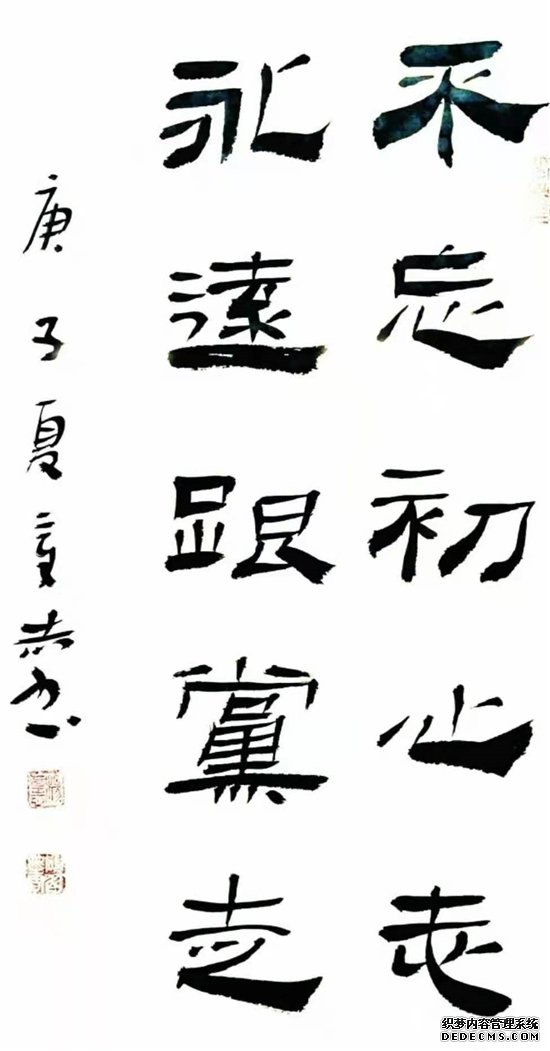 不忘初心志
永遠跟黨走
庚子夏
织梦内容管理系统
DEDECMS.COM